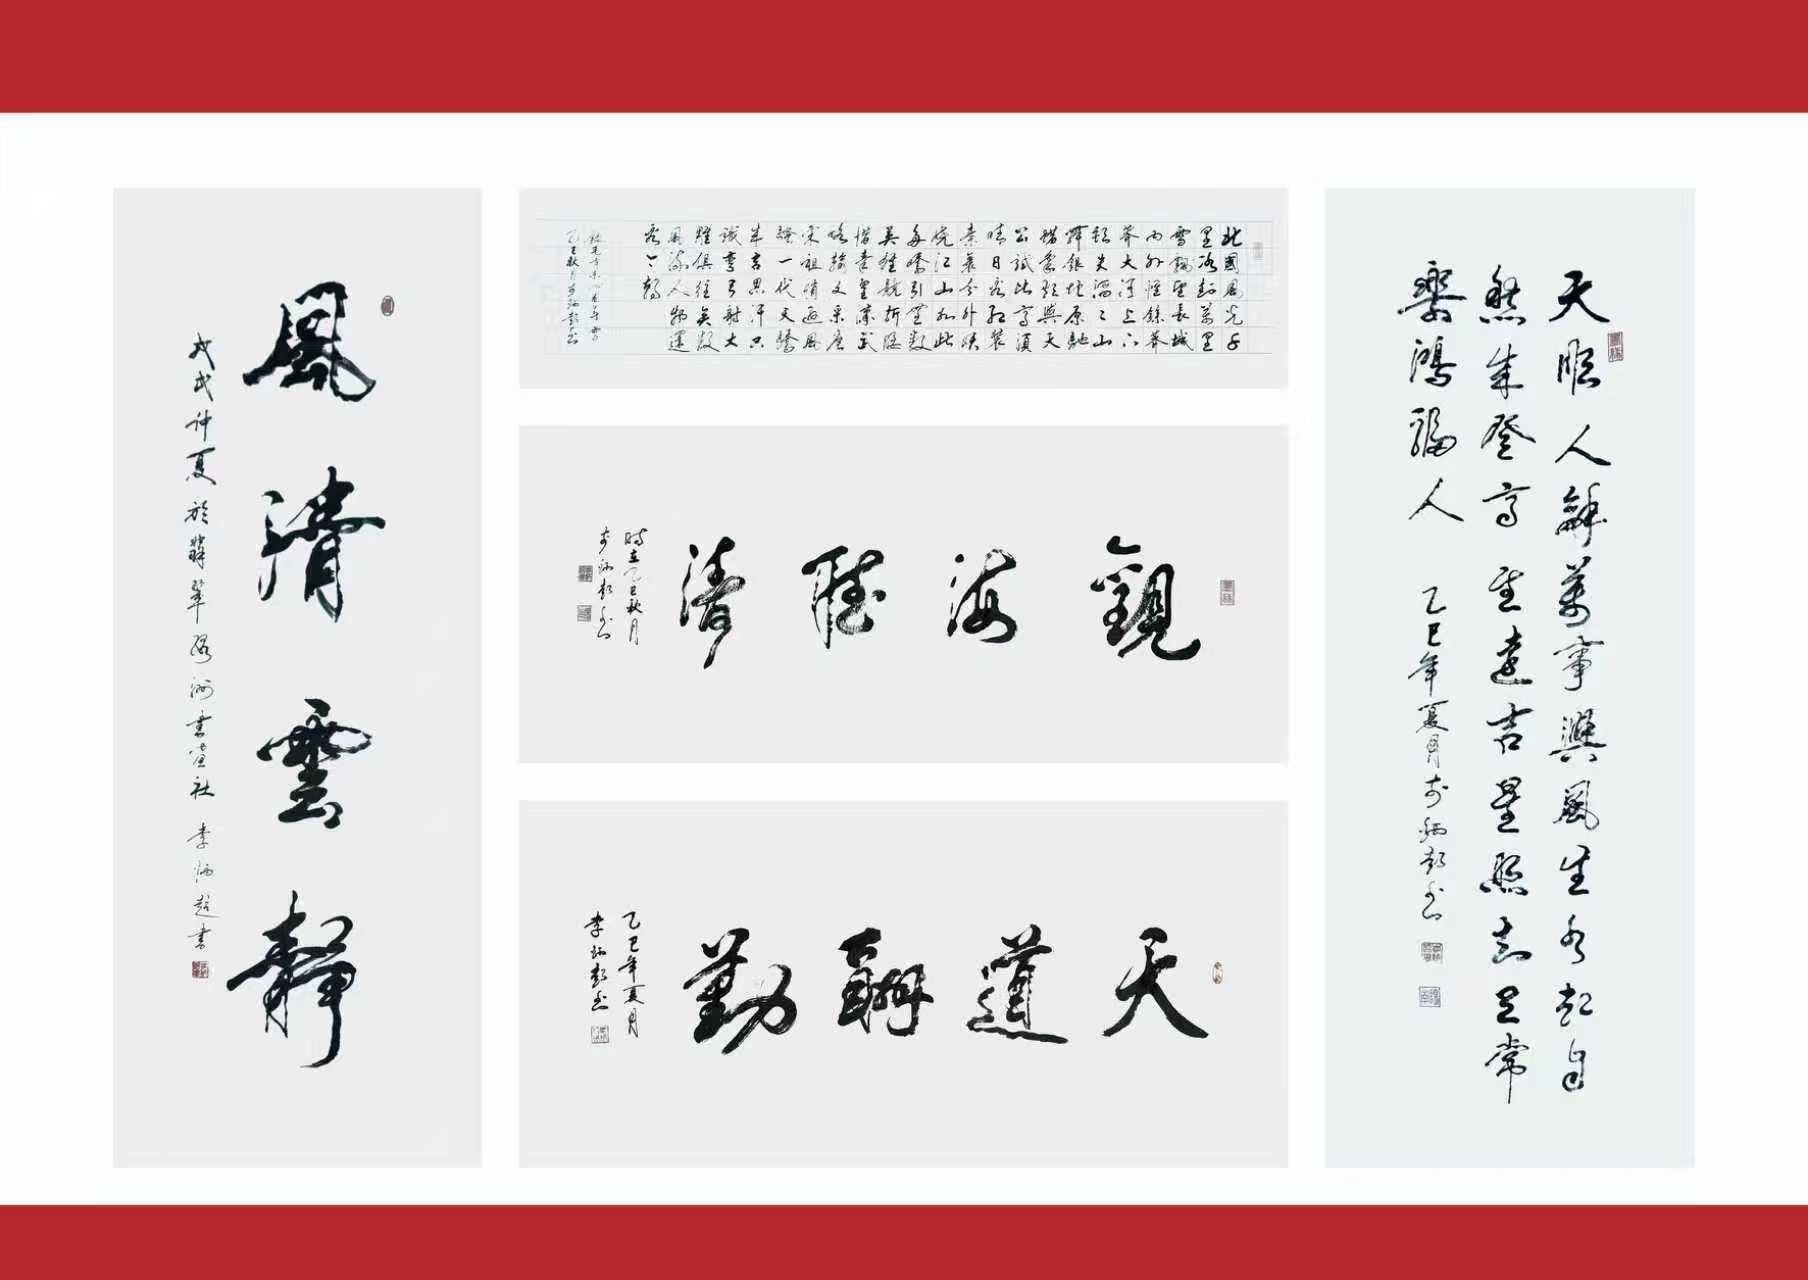 風清雲靜
戊戌仲夏於翡翠绿洲書畫社 李炳超書
北國風光千
里冰封萬里
雪飄望長城
內外惟餘莽
莽大河上下
頓失滔〻山
舞銀蛇原馳
蠟象欲與天
公試比高須
晴日看紅裝
素裹分外妖
嬈江山如此
多嬌引無數
英雄競折腰
惜秦皇漢武
略輸文采唐
宋祖稍遜風
騷一代天驕
成吉思汗只
識彎弓射大
雕俱往矣數
風流人物還
看今朝
錄毛主席沁園春雪
乙巳秋月李炳超書
觀海聽濤
時在乙巳秋月
李炳超書
天道酬勤
乙巳年夏月
李炳超書
天順人龢萬事興風生水起自
然成登高望遠吉星照知足常
樂鴻福人 乙巳年夏月李炳超書